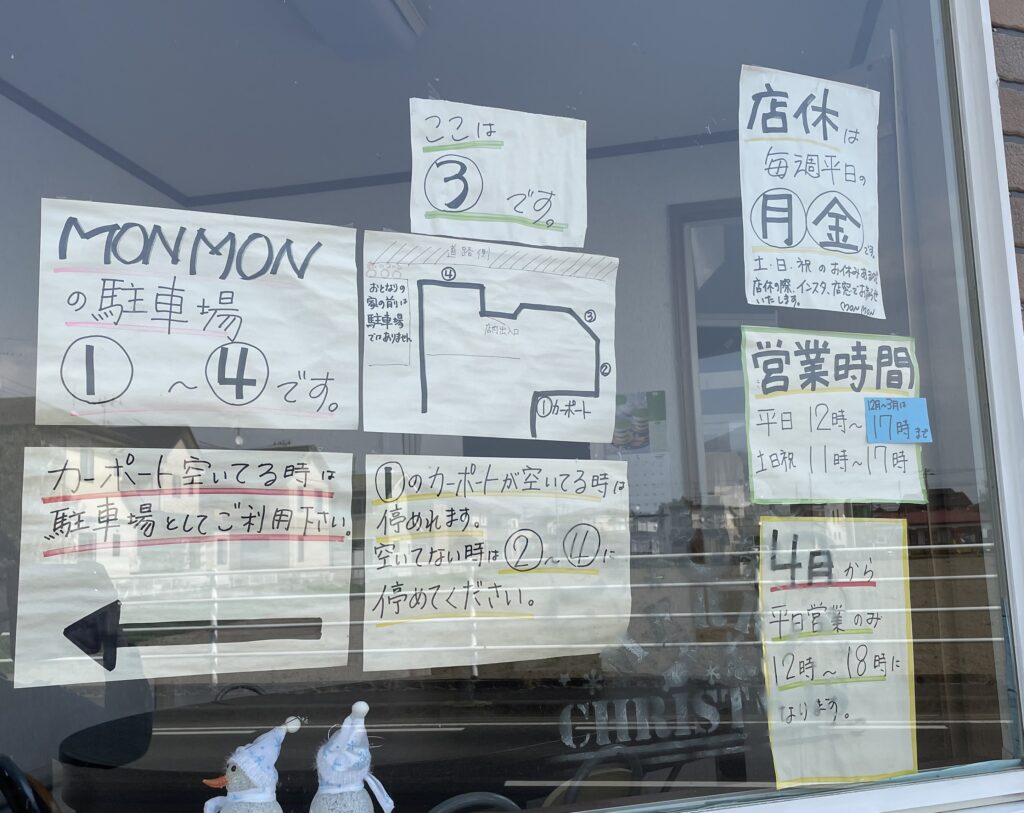 ここは
③です。
MONMON
の駐車場
①～④です。
道路側
④
おとなりの
家の前りは
駐車場
ではありません
店内出入口
③
②
①カーポート
カーポート空いてる時は
駐車場としてご利用下さい。
①のカーポートが空いてる時は
停めれます。
空いてない時は②～④に
停めてください。
店休は
毎週平日の
月金です。
土・日・祝のお休みある
店休の際、インスタ、店窓でお知らせ
いたします。
MONMON
営業時間
平日 12時～
12月～3月は
17時まで
土日祝 11時～17時
4月から
平日営業のみ
12時～18時に
なります。
CHRIST